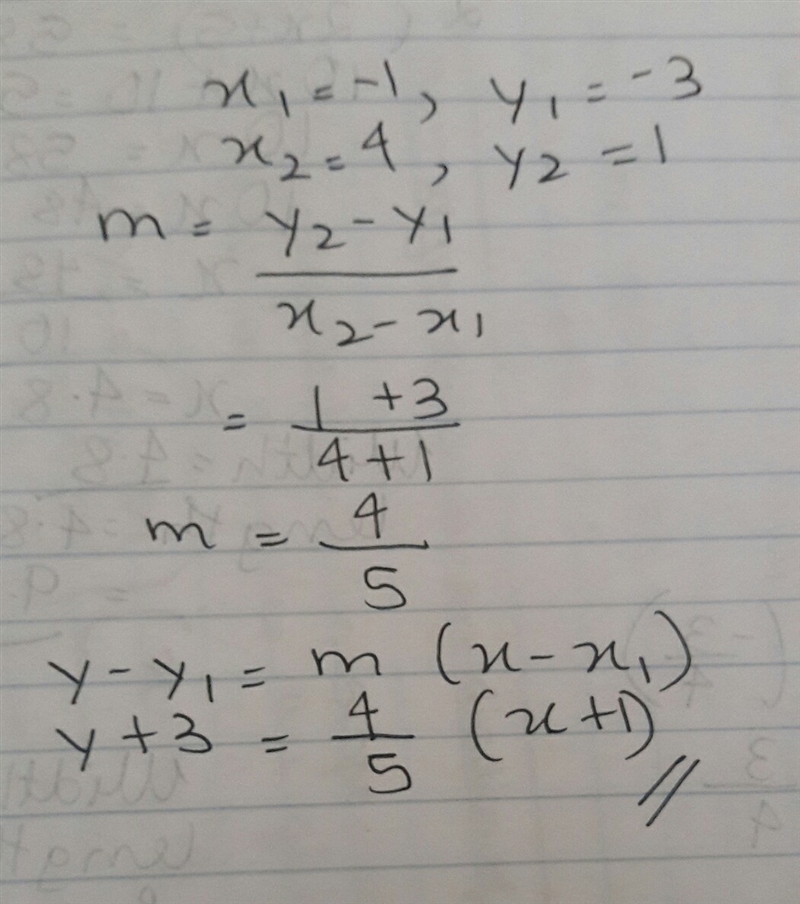 x₁ = -1, y₁ = -3
x₂ = 4, y₂ = 1
m = y₂ - y₁
x₂ - x₁
= 1 + 3
4 + 1
m = 4
5
y - y₁ = m (x - x₁)
y + 3 = 4/5 (x + 1) //